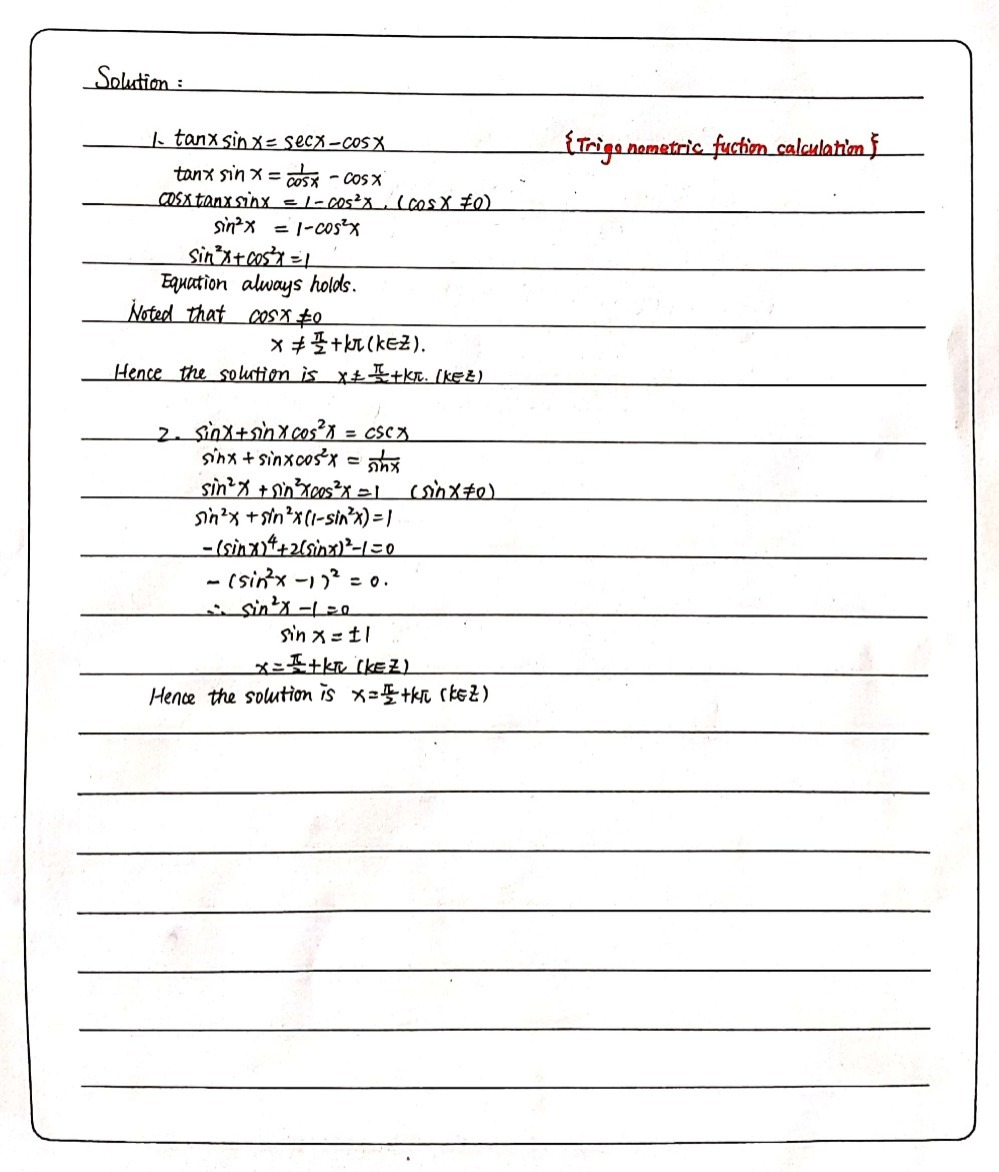 Solution :
1. tanx sin x = secx - cosx
{Trigonometric fuction calculation}
tanx sin x = 1/cosx - cosx
cosx tanx sinx = 1 - cos²x . (cosx ≠ 0)
sin²x = 1 - cos²x
sin²x + cos²x = 1
Equation always holds.
Noted that cosx ≠ 0
x ≠ π/2 + kπ (k∈Z).
Hence the solution is x ≠ π/2 + kπ. (k∈Z)
2. sinx + sinx cos²x = cscx
sinx + sinxcos²x = 1/sinx
sin²x + sin²xcos²x = 1 (sinx ≠ 0)
sin²x + sin²x(1-sin²x) = 1
-(sinx)⁴ + 2(sinx)² - 1 = 0
-(sin²x - 1)² = 0.
∴ sin²x - 1 = 0
sin x = ±1
x = π/2 + kπ (k∈Z)
Hence the solution is x = π/2 + kπ (k∈Z)